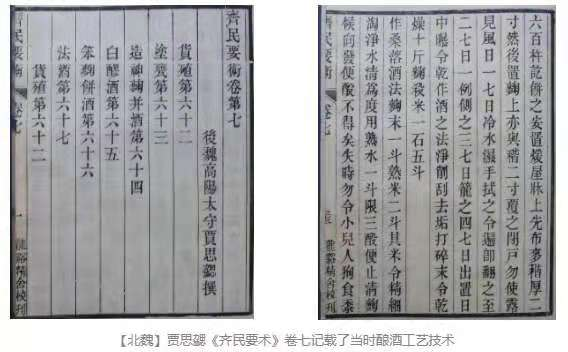 齊民要術卷第七
後魏高陽太守賈思勰撰
貨殖第六十二
塗甕第六十三
造神麴并酒第六十四
白醪酒第六十五
笨麴餅酒第六十六
法酒第六十七
貨殖第六十二
齊民要術 卷七 一 龍谿精舍校刊
六百杵訖餅之安置煖屋牀上先布麥稭厚二
寸然後置麴上亦與稭二寸覆之閉戶勿使露
見風日一七日冷水濕手拭之令遍卽翻之至
二七日一例側之三七日籠之四七日出置日
中曝令乾作酒之法淨削刮去垢打碎末令乾
燥十斤麴殺米一石五斗
作桑落酒法麴末一斗熟米二斗其米令精細
淘淨水清爲度用熟水一斗限三酘便止漬麴
候向發便酘不得失時勿令小兒人狗食黍
卷七 龍谿精舍校刊
【北魏】贾思勰《齐民要术》卷七记载了当时酿酒工艺技术